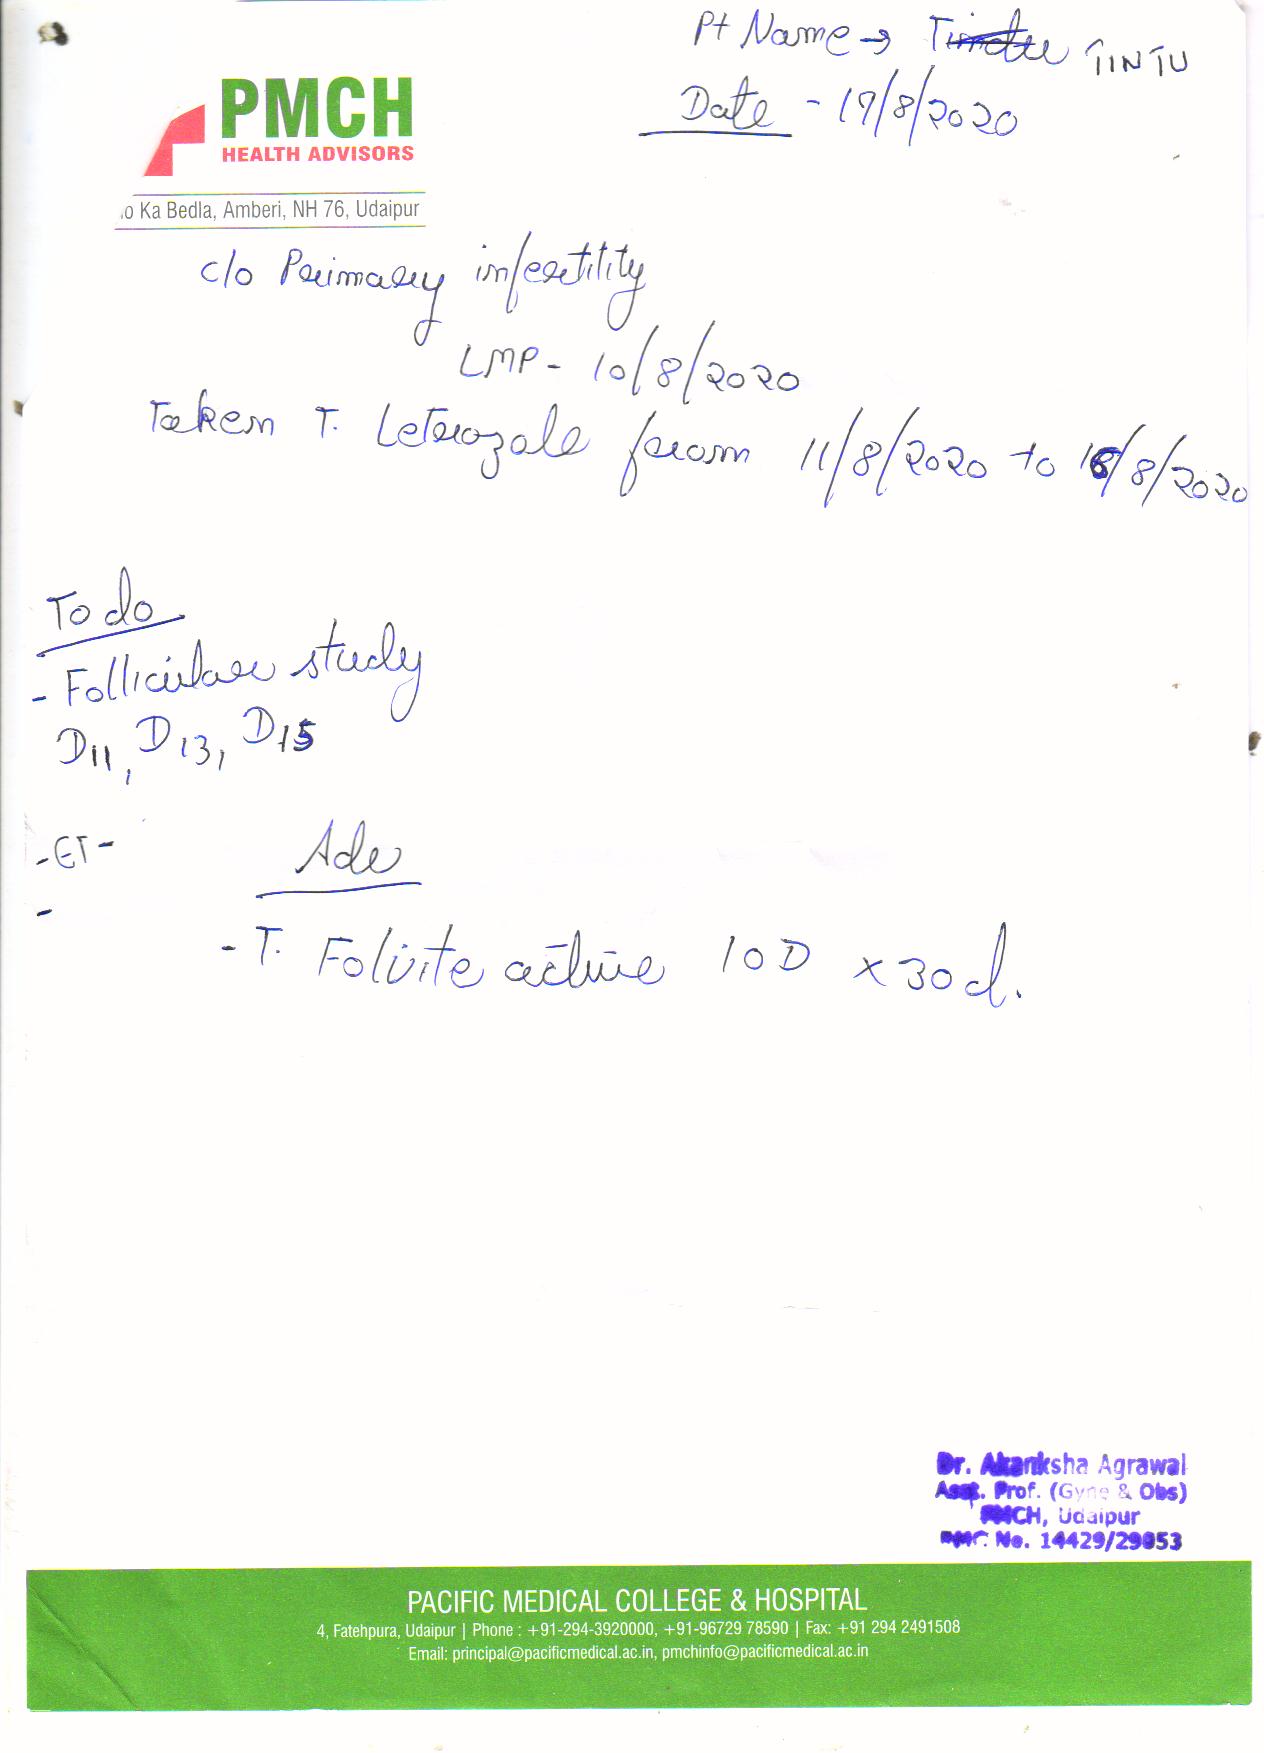 Pt Name → TINTU
Date - 17/8/2020
PMCH
HEALTH ADVISORS
o Ka Bedla, Amberi, NH 76, Udaipur
c/o Primary infertility
LMP - 10/8/2020
Taken T. Letrozole from 11/8/2020 to 16/8/2020
To do
- Follicular study
D11, D13, D15
- ET -
-
Adv
- T. Folvite active 1OD x 30d.
Dr. Akanksha Agrawal
Asst. Prof. (Gyne & Obs)
PMCH, Udaipur
RMC No. 14429/29053
PACIFIC MEDICAL COLLEGE & HOSPITAL
4, Fatehpura, Udaipur | Phone : +91-294-3920000, +91-96729 78590 | Fax: +91 294 2491508
Email: principal@pacificmedical.ac.in, pmchinfo@pacificmedical.ac.in